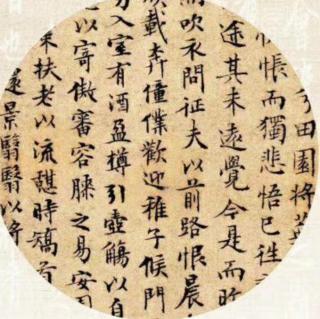 兮田園將蕪
悵而獨悲悟已往
途其未遠覺今是而昨
而吹衣問征夫以前路恨晨
載奔僮僕歡迎稚子候門
入室有酒盈樽引壺觴以自
以寄傲審容膝之易安園
扶老以流憩時矯首
景翳翳以將